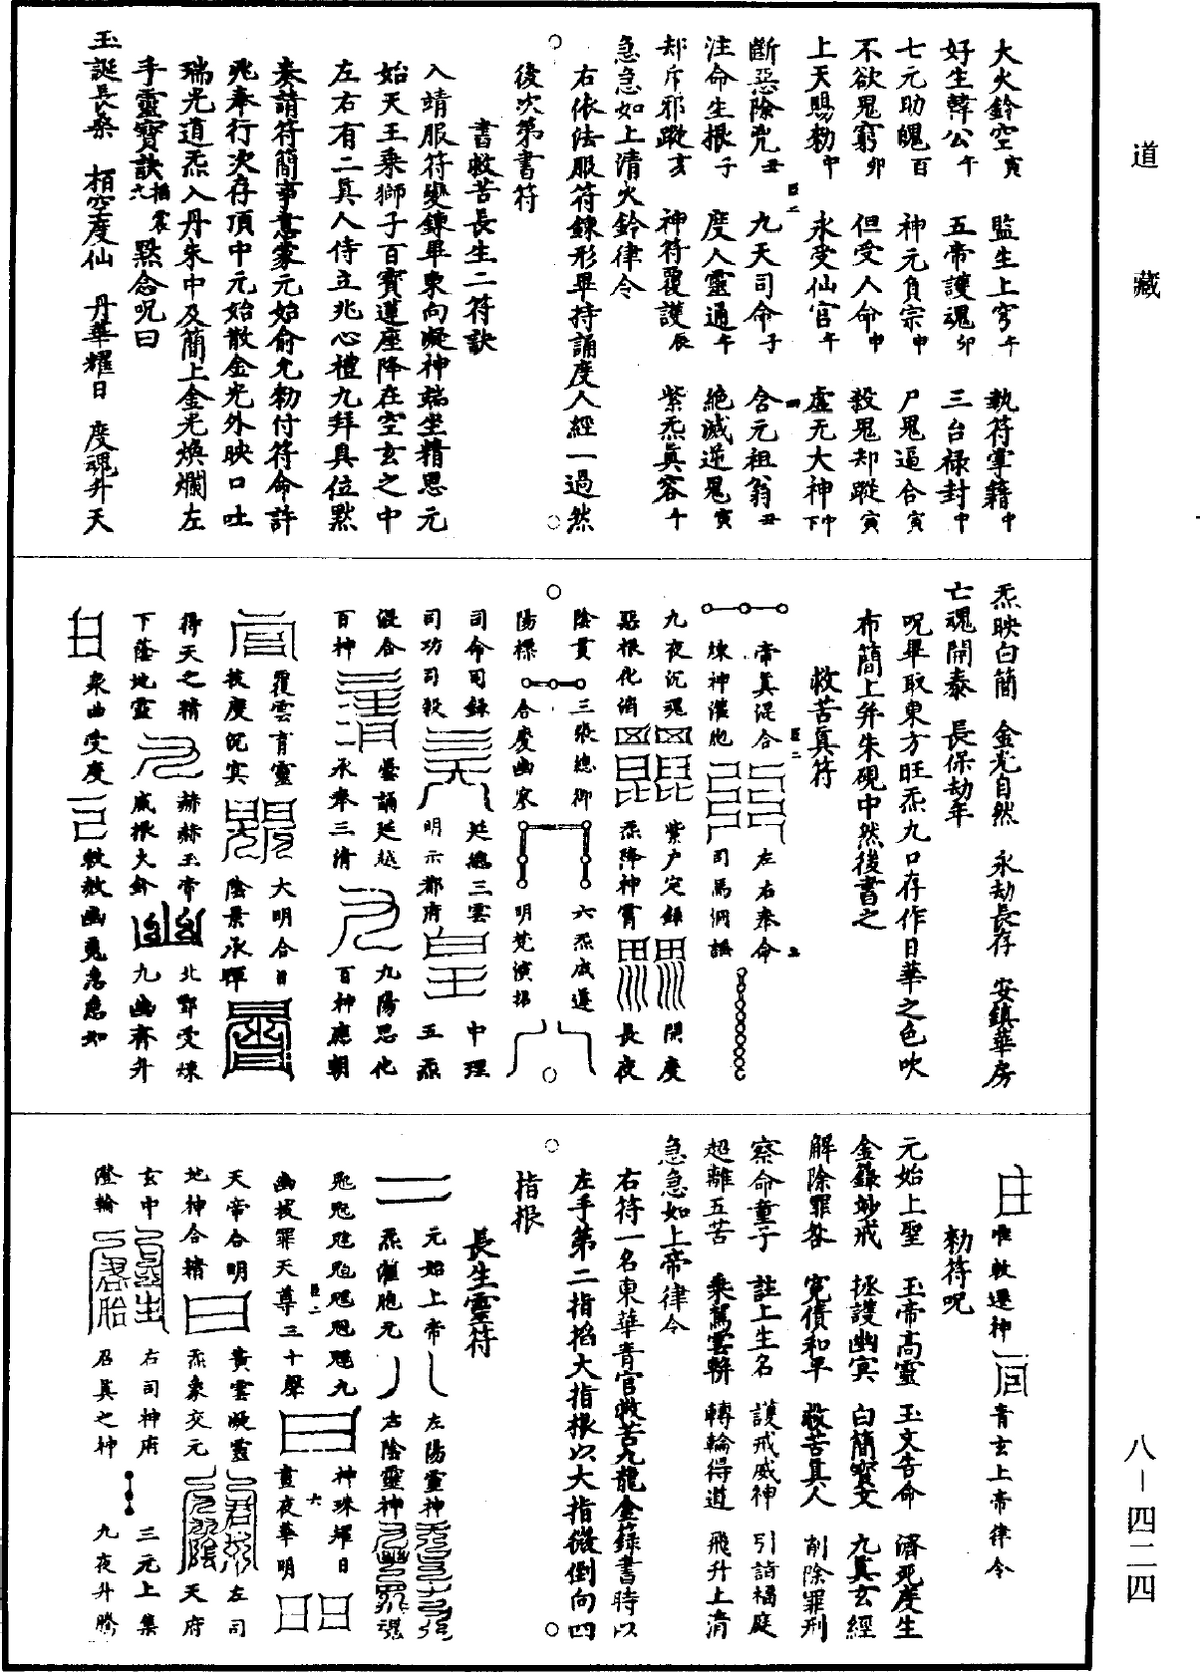 道藏
大火鈴空寅　監生上穹午　執符掌籍中
好生韓公午　五帝護魂卯　三台祿封中
七元助魄酉　神元負宗申　尸鬼逼合寅
不欲鬼窮卯　但受人命申　殺鬼却蹤寅
上天賜勑中　永受仙官午　虛无大神中下
斷惡除兇丑　九天司命子　含元祖翁丑
注命生根子　度人靈通午　絕滅逆鬼寅
却斥邪蹤亥　神符覆護辰　紫炁真容午
急急如上清火鈴律令
右依法服符鍊形畢持誦度人經一過然
後次第書符
書救苦長生二符訣
入靖服符變鍊畢東向凝神端坐精思元
始天王乘獅子百寶蓮座降在空玄之中
左右有二真人侍立兆心禮九拜具位默
奏請符簡事意蒙元始俞允勑付符命許
兆奉行次存頂中元始散金光外映口吐
瑞光道炁入丹朱中及簡上金光煥爛左
手靈寶訣默念呪曰
玉誕長桑　栢空度仙　丹華耀日　度魂升天
炁映白簡　金光自然　永劫長存　安鎮華房
亡魂開泰　長保劫年
呪畢取東方旺炁九口存作日華之色吹
布簡上并朱硯中然後書之
救苦真符
帝真混合　左右奉命
煉神灌胞　司馬洞謠
九夜沉魂　紫户定錄　開度
惡根化消　炁降神霄　長夜
陰貫　三張總御　六炁成運
陽標　合慶幽寥　明梵演招
司命司錄　延總三雲　中理
司功司殺　明示都府　五炁
混合　曇誦延越　九陽思化
百神　一承奉三清　百神應朝
覆雲育靈　大明合日
披度沉寅　陰景承暉
得天之精　赫赫玉帝　北酆受煉
下蔭地靈　威振火鈴　九幽齊升
衆曲受度　敕救幽冤急急如
唯敕還神　青玄上帝律令
勑符呪
元始上聖　玉帝高靈　玉文告命　濟死度生
金錄妙戒　拯護幽冥　白簡寶文　九真玄經
解除罪咎　寬債和平　救苦真人　削除罪刑
察命童子　註上生名　護戒威神　引詣福庭
超離五苦　乘駕雲軿　轉輪得道　飛升上清
急急如上帝律令
右符一名東華青宮救苦九龍金籙書時以
左手第二指掐大指根以大指微倒向四
指根
長生靈符
元始上帝　左陽靈神
炁灌胞元　右陰靈神　魂
九　神珠耀日
幽披罪天尊三十聲　晝夜華明
天帝合明　黃雲凝靈　左司
地神合精　炁象交元　天府
玄中　右司神府　三元上集
澄輪　召真之神　九夜升騰
八—四二四